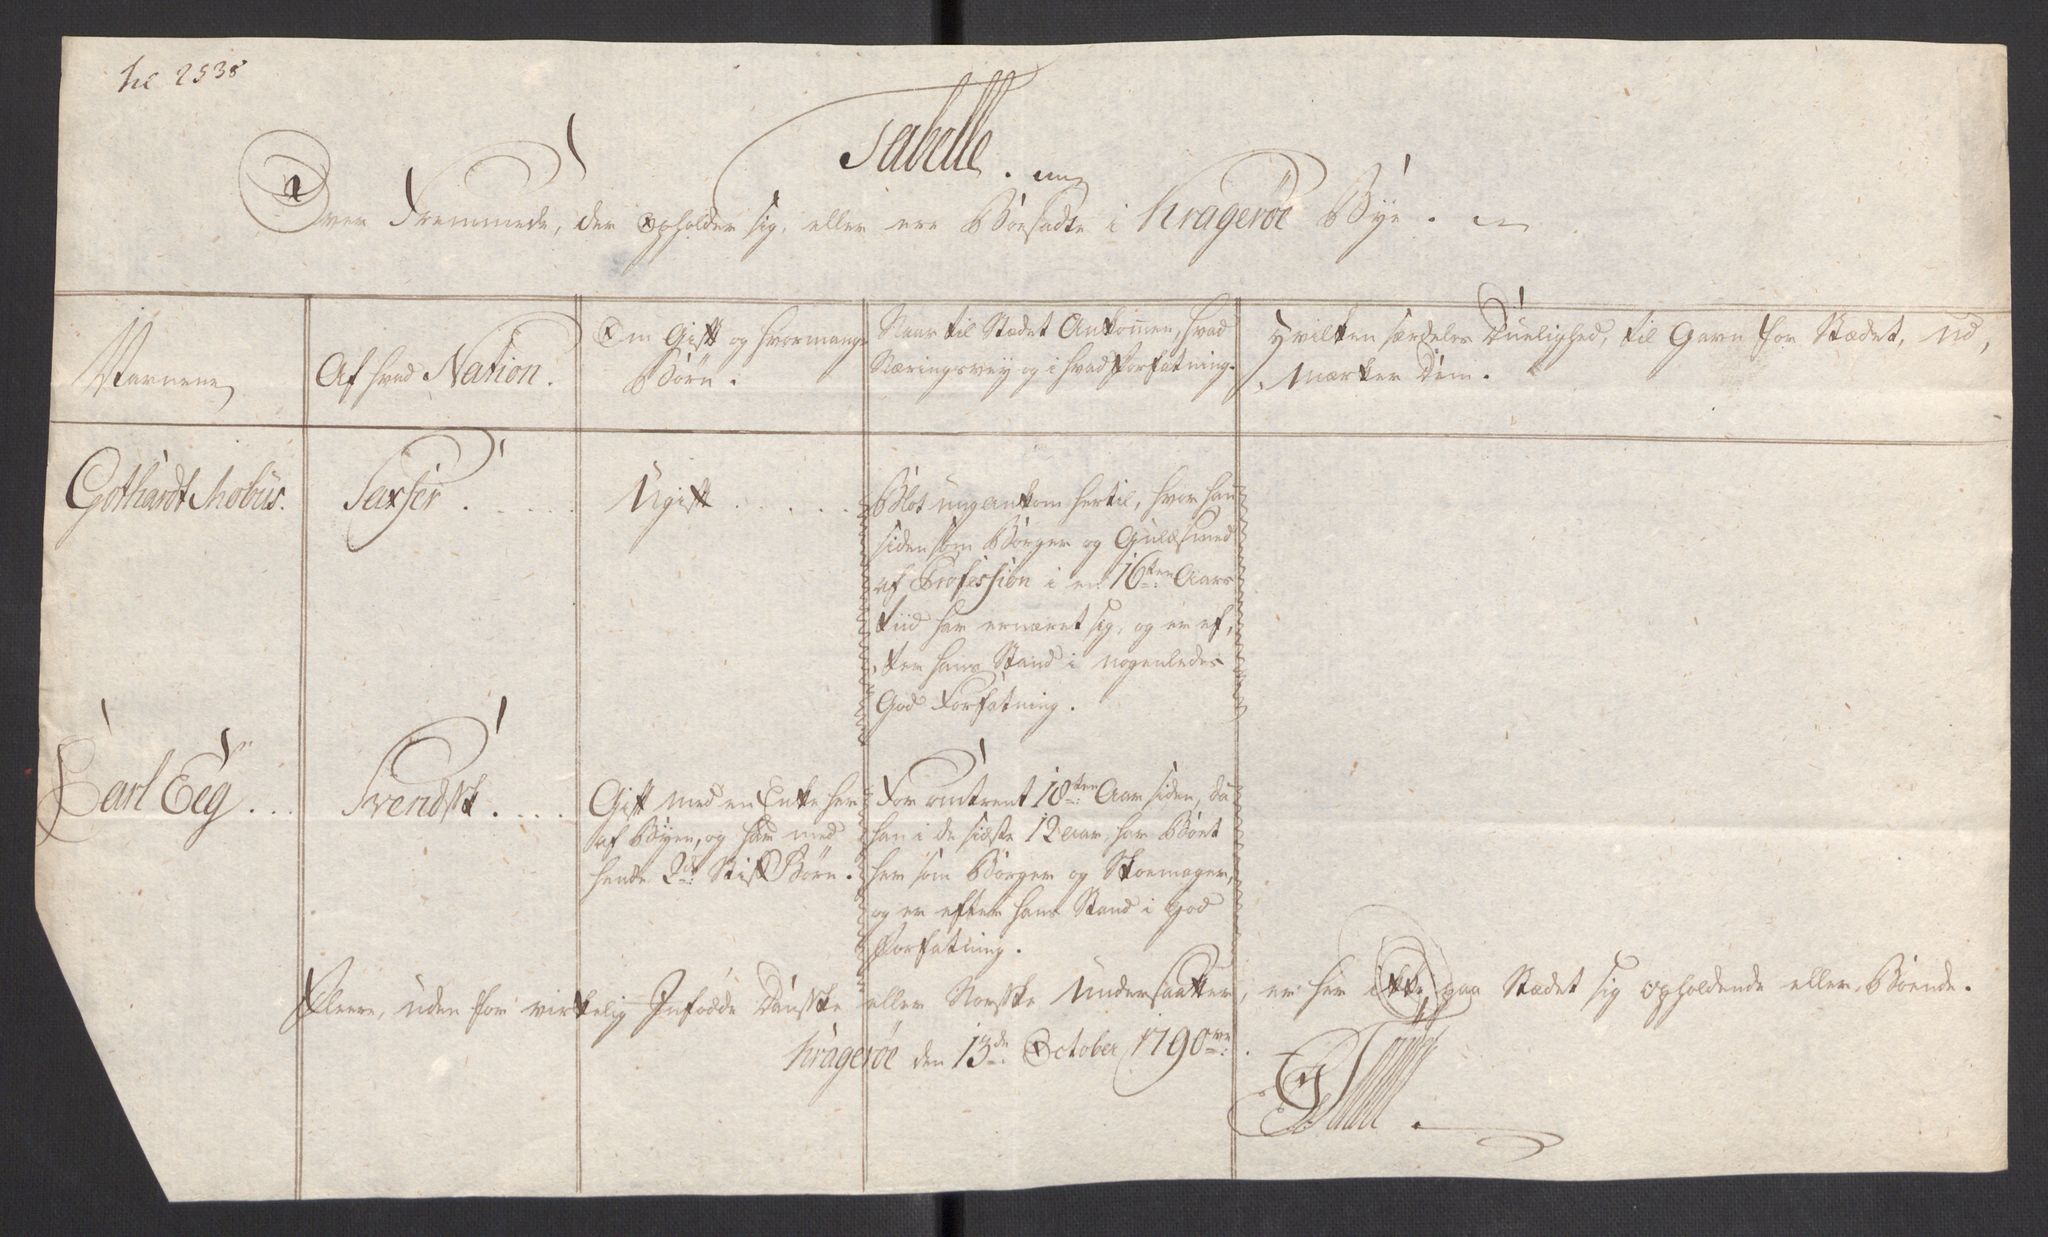 til 2538
Tabelle.
Over Fremmede, der opholder sig, eller ere Boesadte i Kragerøe Bye.
Navnene
Af hvad Nation.
Om Gift og hvormange
Børn.
Naar til Stædet Ankommen, hvad
Næringsvey og i hvad Forfatning.
Hvilken særdeles Duelighed, til Gavn for Stædet, ud,
,mærker Dem.
Gothardt Mobus.
Saxser.
Ugift
Blot ung ankom hertil, hvor han
siden som Borger og Guldsmed
af Profession i en 16ten Aars
tiid har ernæret sig, og er ef,
,ter hans Stand i nogenledes
God Forfatning.
Carl Eeg.
Svendsk.
Gift med en Enke her
af Byen, og har med
hende 2de Stif Børn.
For omtrent 18ten Aar siden, da
han i de sidste 12 Aar har Boet
her som Borger og Skoemager,
og er efter hans Stand i God
Forfatning.
Fleere, uden for virkelig Infødde Danske eller Norske Undersaatter, er her ikke paa Stædet sig opholdende eller Boende.
Kragerøe den 13de October 1790ve.